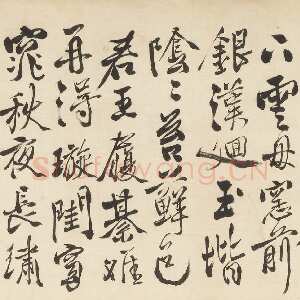 下雲母窓前
銀漢迴玉階
陰〻苔蘚色
君王履綦難
再得璇閨窈
窕秋夜長繡
Shufawang.CN